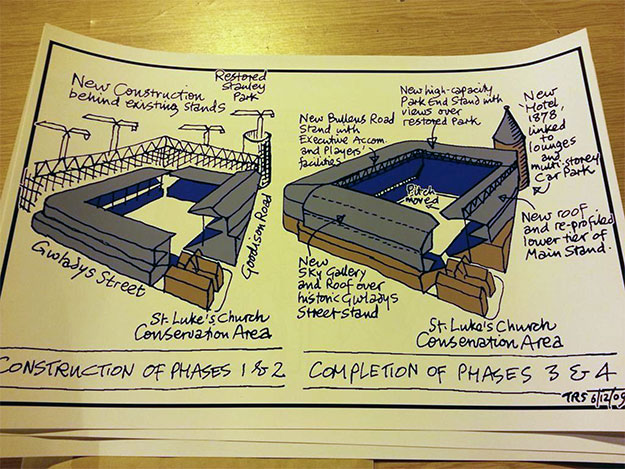 New Construction
behind existing stands
Restored
Stanley
Park
Gwladys Street
Goodison Road
St. Luke's Church
Conservation Area
CONSTRUCTION OF PHASES 1 & 2
New Bullens Road
Stand with
Executive Accom.
and Players'
facilities
New high-capacity
Park End Stand with
views over
restored Park
New
Hotel,
1878,
linked
to
lounges
and
multi-storey
Car Park
Pitch
moved
New roof
and re-profiled
lower tier of
Main Stand.
New
Sky Gallery
and Roof over
historic Gwladys
Street Stand
St. Luke's Church
Conservation Area
COMPLETION OF PHASES 3 & 4
TRS 6/12/09